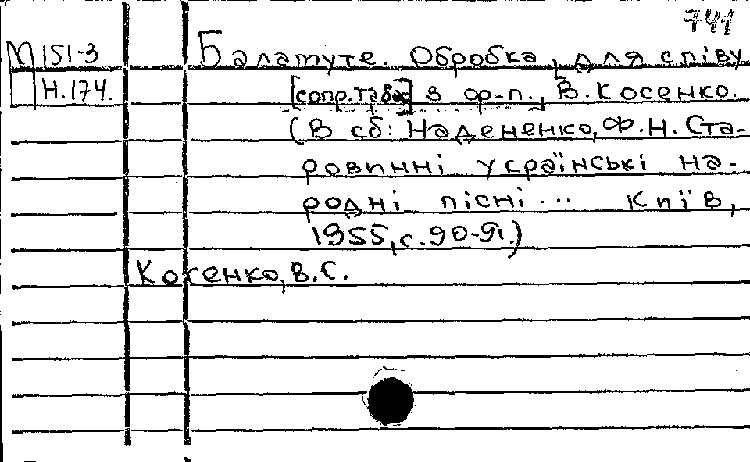 741
М 151-3 Балатуте. Обробка, для співу
Н.174. [сопр. та бас] з ф-п., В. Косенко.
(В сб: Надененко, Ф.Н. Ста-
ровинні українські на-
родні пісні... Київ,
1955, с. 90-91.)
Косенко, В.С.